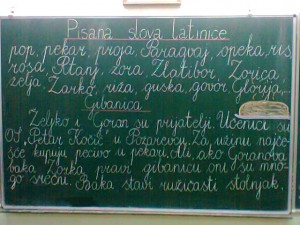 Pisana slova latinice
pop, pekar, proja, Paragvaj, opeka, ris,
rosa, Rtanj, zora, Zlatibor, Zorica
želja, Žarko, riža, guska, govor, Glorija,...
Gibanica
Željko i Goran su prijatelji. Učenici su
OŠ „Petar Kočić" u Požarevcu. Za užinu najče-
šće kupuju pecivo u pekari. Ali, ako Goranova
baka Zorka pravi gibanicu oni su mno-
go srećni. Baka stavi ružičasti stolnjak.